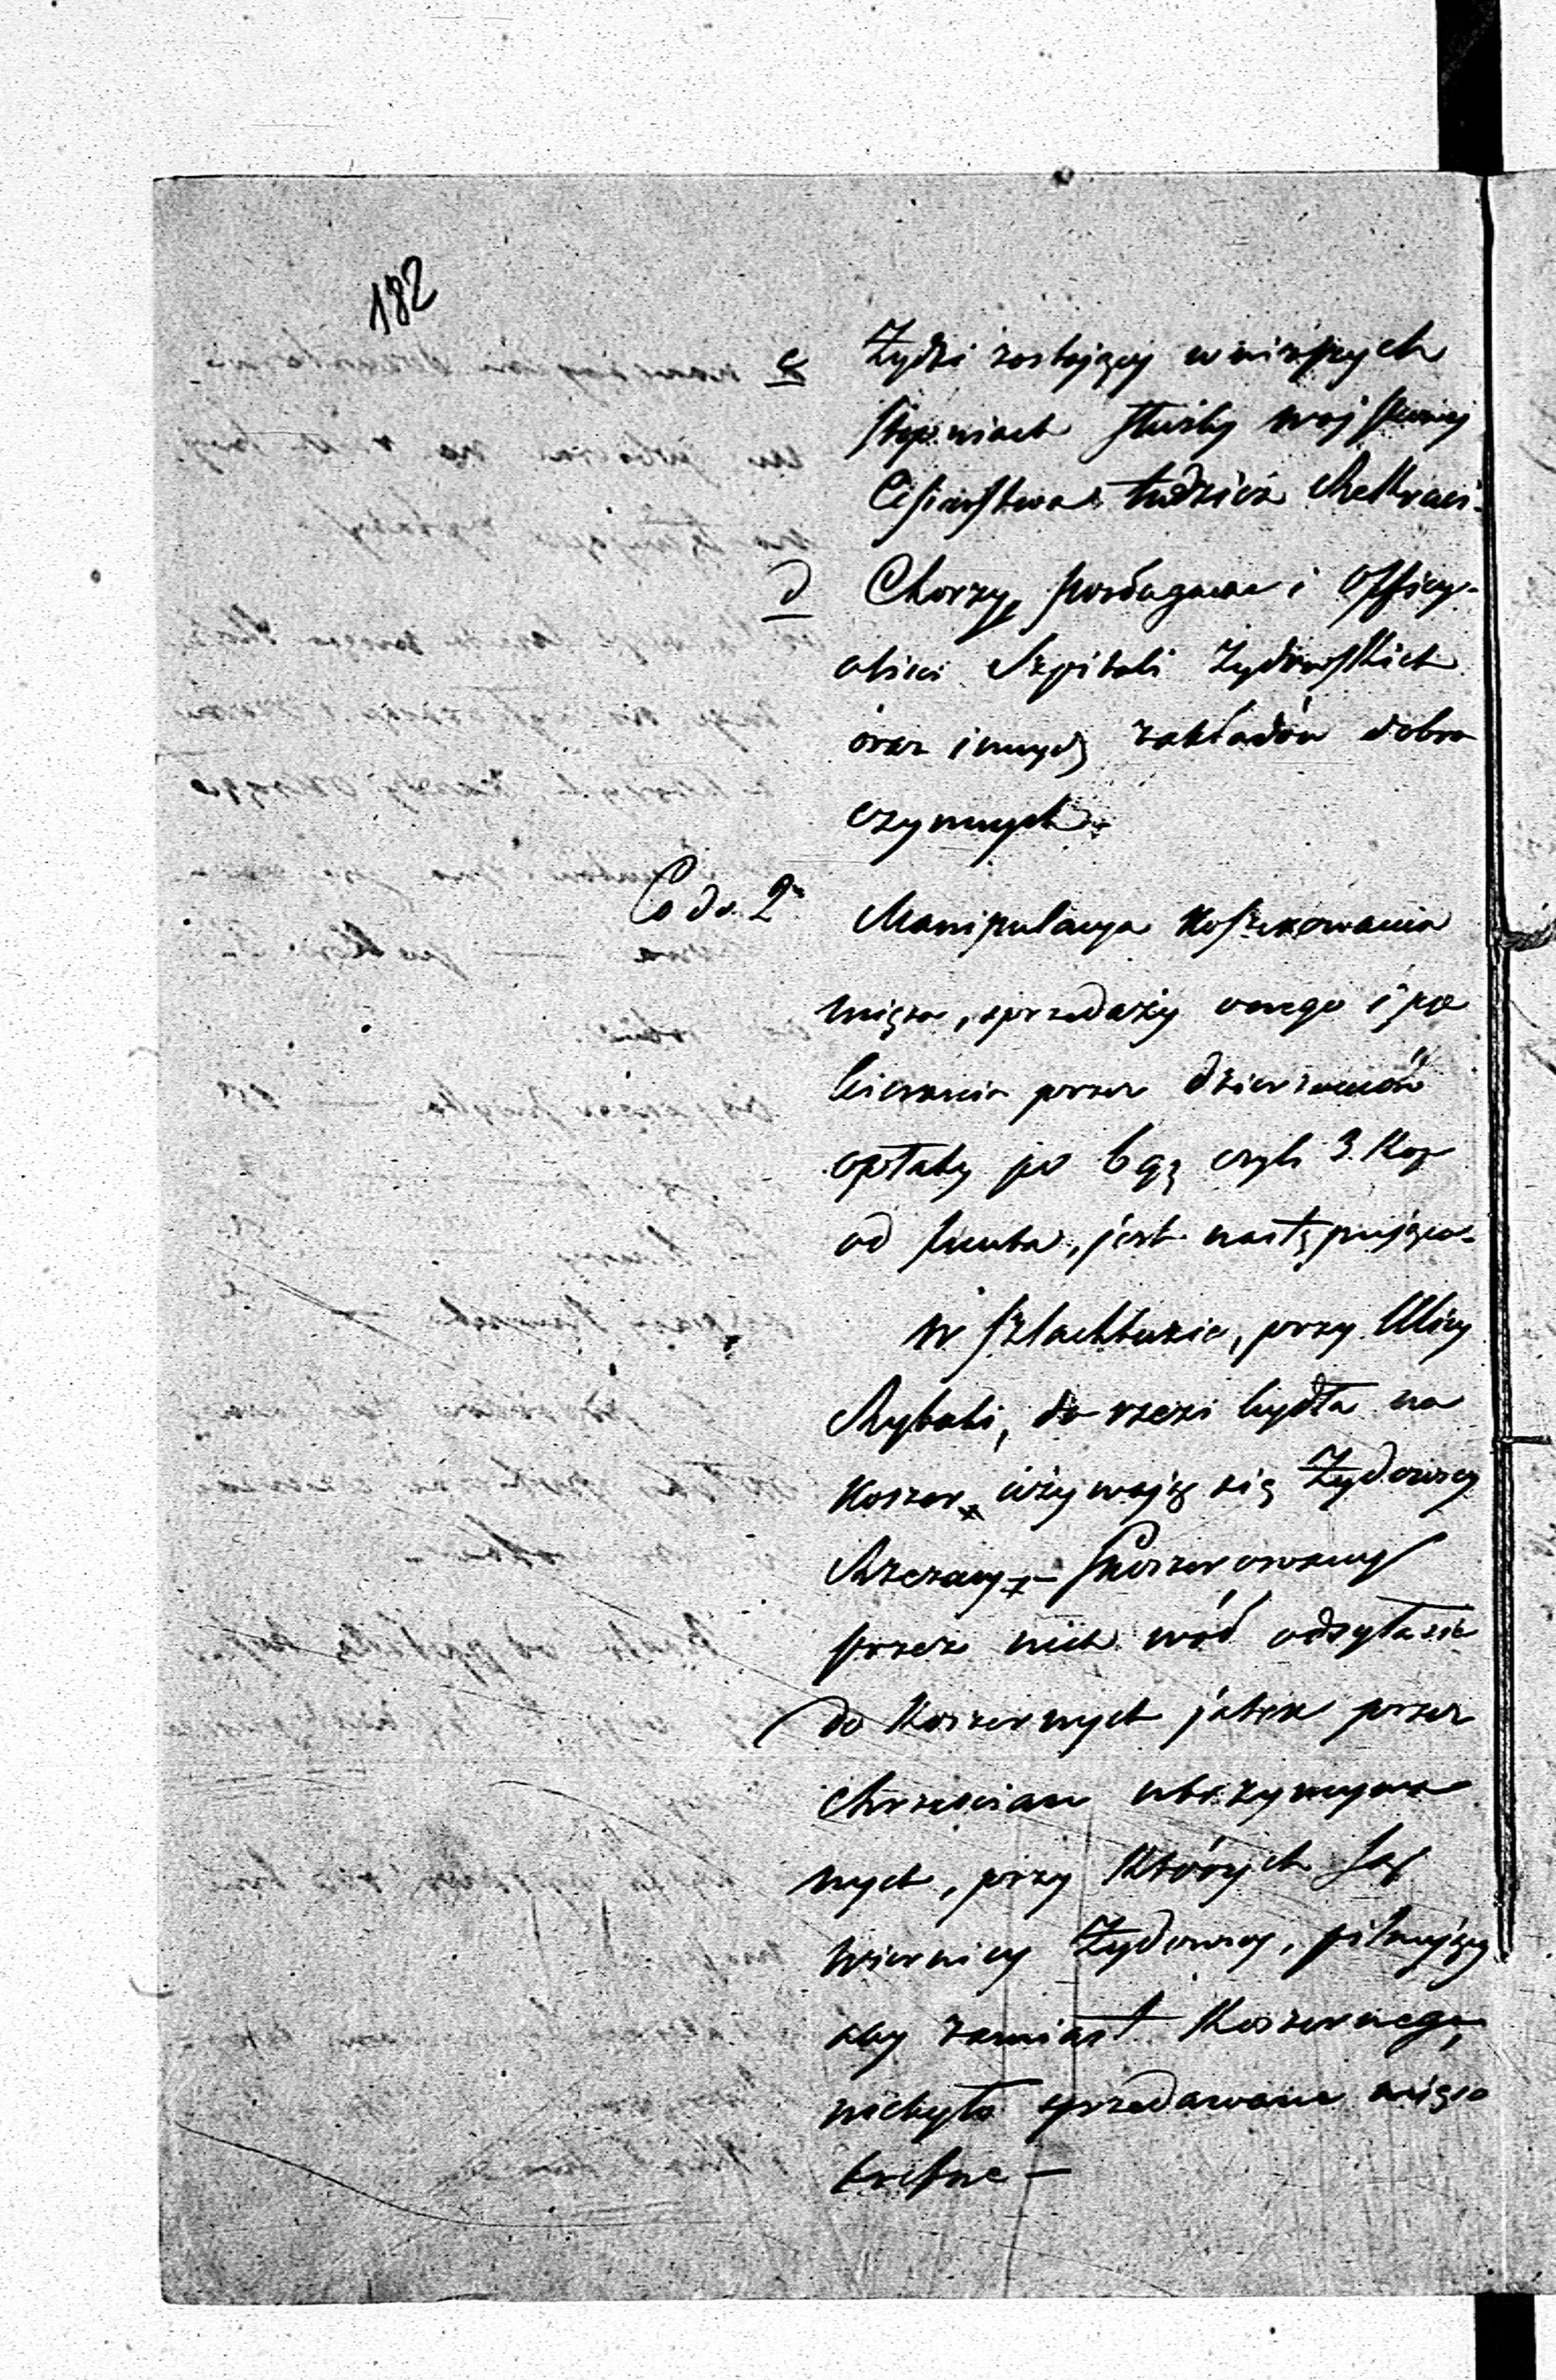 182
c Żydzi zostający w niższych
stopniach służby wojskowej
Cesarstwa tudzież Rekruci.
d Chorzy, posługacze i Officy-
aliści Szpitali żydowskich
oraz innych zakładów dobro
czynnych.
Co do 2° Manipulacya koszerowania
mięsa, sprzedaży onego i po
bierania przez dzierżawców
opłaty po 6 gr czyli 3 kop
od funta, jest następująca.
w szlachtuzie, przy Ulicy
Rybaki, do rzezi bydła na
koszer, używają się Żydowscy
Rzezacy – Skoszerowany
przez nich wół odsyła się
do koszernych jatek przez
chrześcian utrzymywa
nych, przy których są
wiernicy Żydowscy, pilnujący
aby zamiast koszernego,
niebyło sprzedawane mięso
trefne –